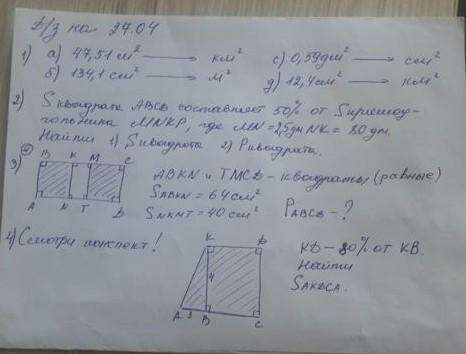 Д/з на 27.04
1) а) 47,51 м² → км²
с) 0,59 дм² → см²
б) 134,1 см² → м²
д) 12,4 см² → км²
2) S квадрата ABCD составляет 50% от S прямоу-
гольника MNKP, где MN = 2,5 дм NK = 80 дм.
Найти 1) S квадрата 2) P квадрата.
3) B K M C
ABKN и TMCD - квадраты (равные)
S ABKN = 64 см²
S NKMT = 40 см²
P ABCD - ?
A N T D
4) Смотри конспект!
K D
KD - 80% от KB.
Найти
4
S AKDCA.
A 3 B C